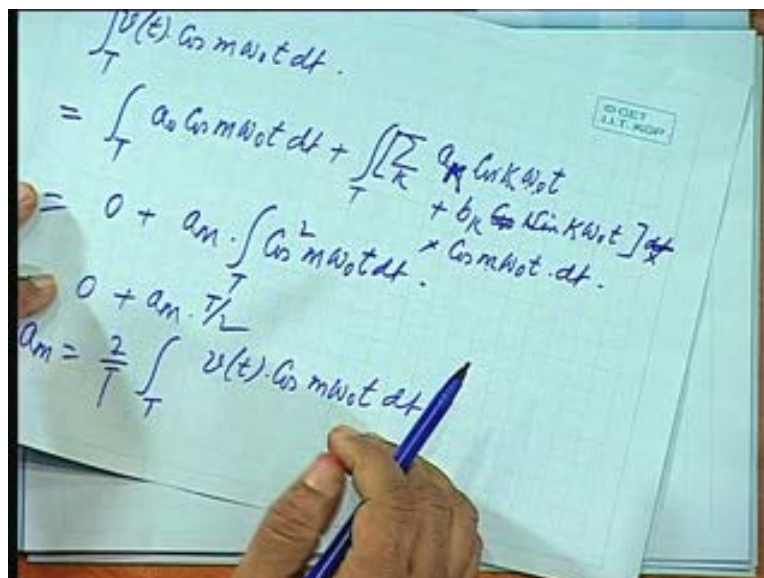 ∫_T v(t) · Cos mω₀t dt.
= ∫_T a₀ Cos mω₀t dt + ∫_T [Σ_K a_K Cos Kω₀t
+ b_K Sin Kω₀t]
× Cos mω₀t · dt.
= 0 + a_m · ∫_T Cos² mω₀t dt.
0 + a_m · T/2
a_m = 2/T ∫_T v(t) · Cos mω₀t dt
© CET
I.I.T. KGP